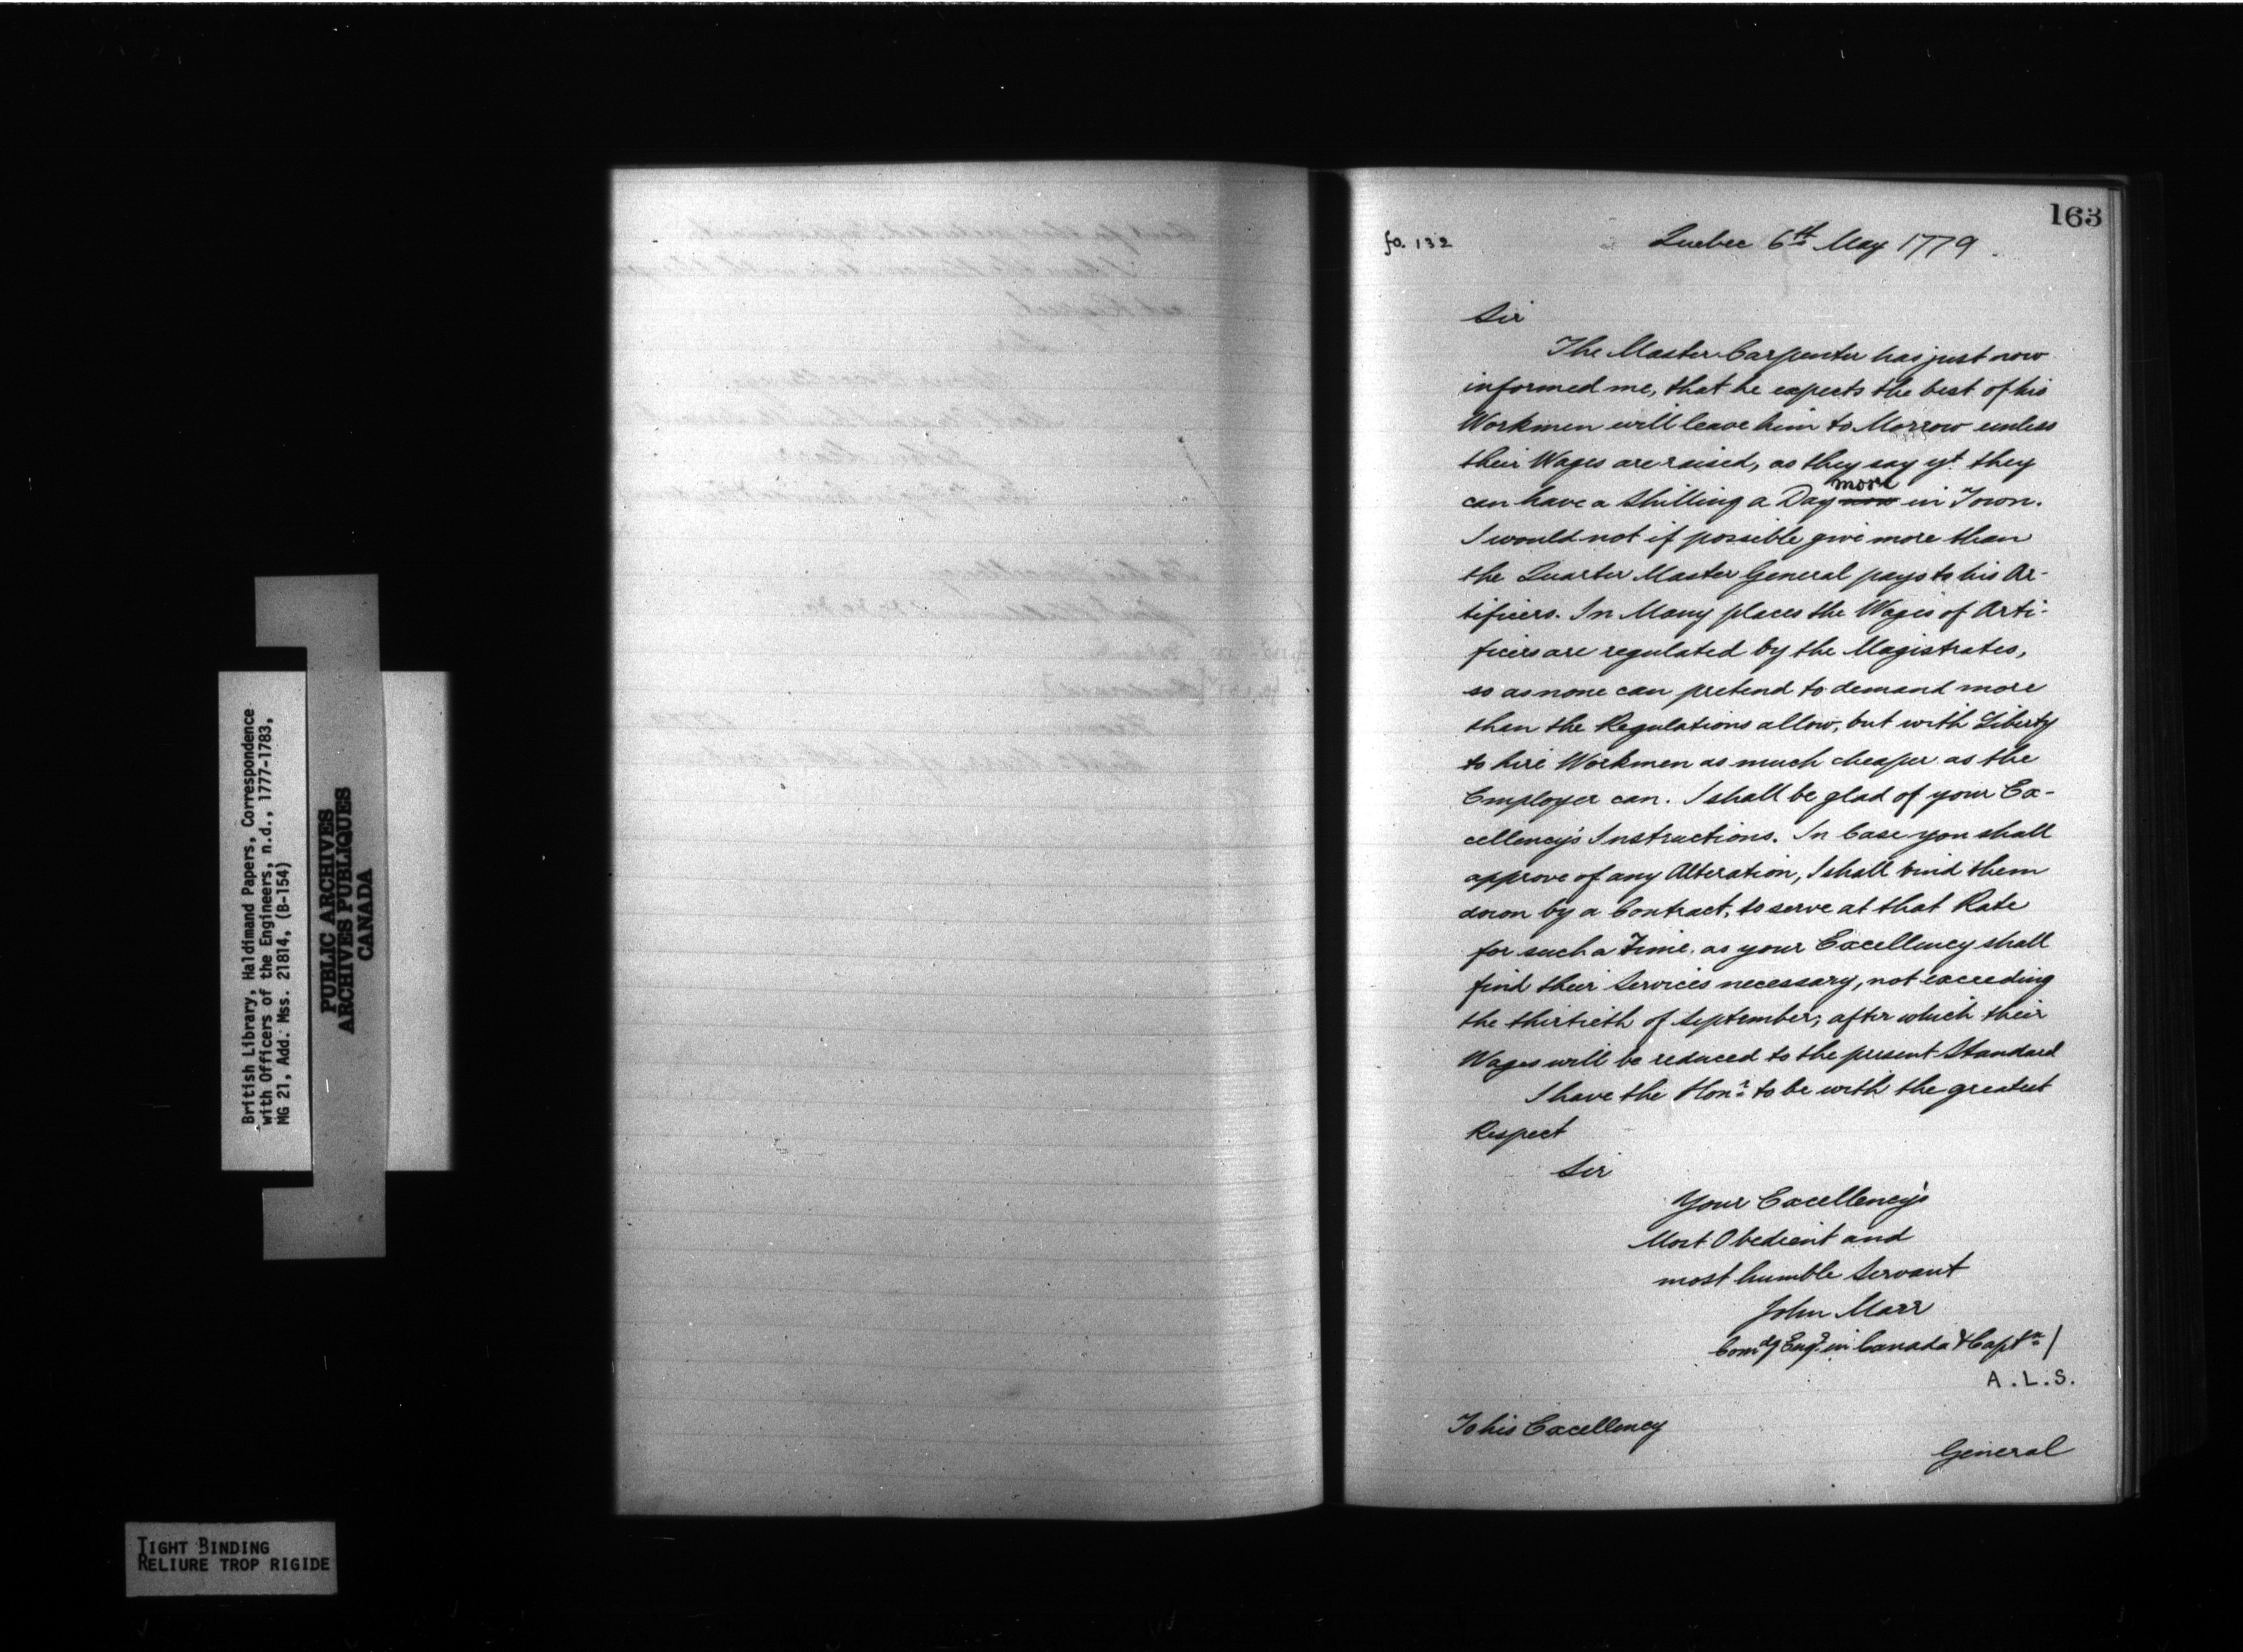 163
fo. 132
Quebec 6th May 1779.
Sir
The Master Carpenter has just now
informed me, that he expects the best of his
Workmen will leave him to Morrow unless
their Wages are raised, as they say yt they
more
can have a Shilling a Day now in Town.
I would not if possible give more than
the Quarter Master General pays to his Ar-
tificers. In Many places the Wages of Arti-
ficers are regulated by the Magistrates,
so as none can pretend to demand more
than the Regulations allow, but with Liberty
to hire Workmen as much cheaper as the
Employer can. I shall be glad of your Ex-
cellency's Instructions. In Case you shall
approve of any Alteration, I shall bind them
down by a Contract, to serve at that Rate
for such a Time, as your Excellency shall
find their Services necessary, not exceeding
the thirtieth of September; after which their
Wages will be reduced to the present Standard
I have the Honr to be with the greatest
Respect
Sir
Your Excellency's
Most Obedient and
most humble Servant
John Marr
Comdg Engr in Canada & Captn /
A.L.S.
To his Excellency
General
British Library, Haldimand Papers, Correspondence
with Officers of the Engineers, n.d., 1777-1783,
MG 21, Add. Mss. 21814, (B-154)
PUBLIC ARCHIVES
ARCHIVES PUBLIQUES
CANADA
TIGHT BINDING
RELIURE TROP RIGIDE